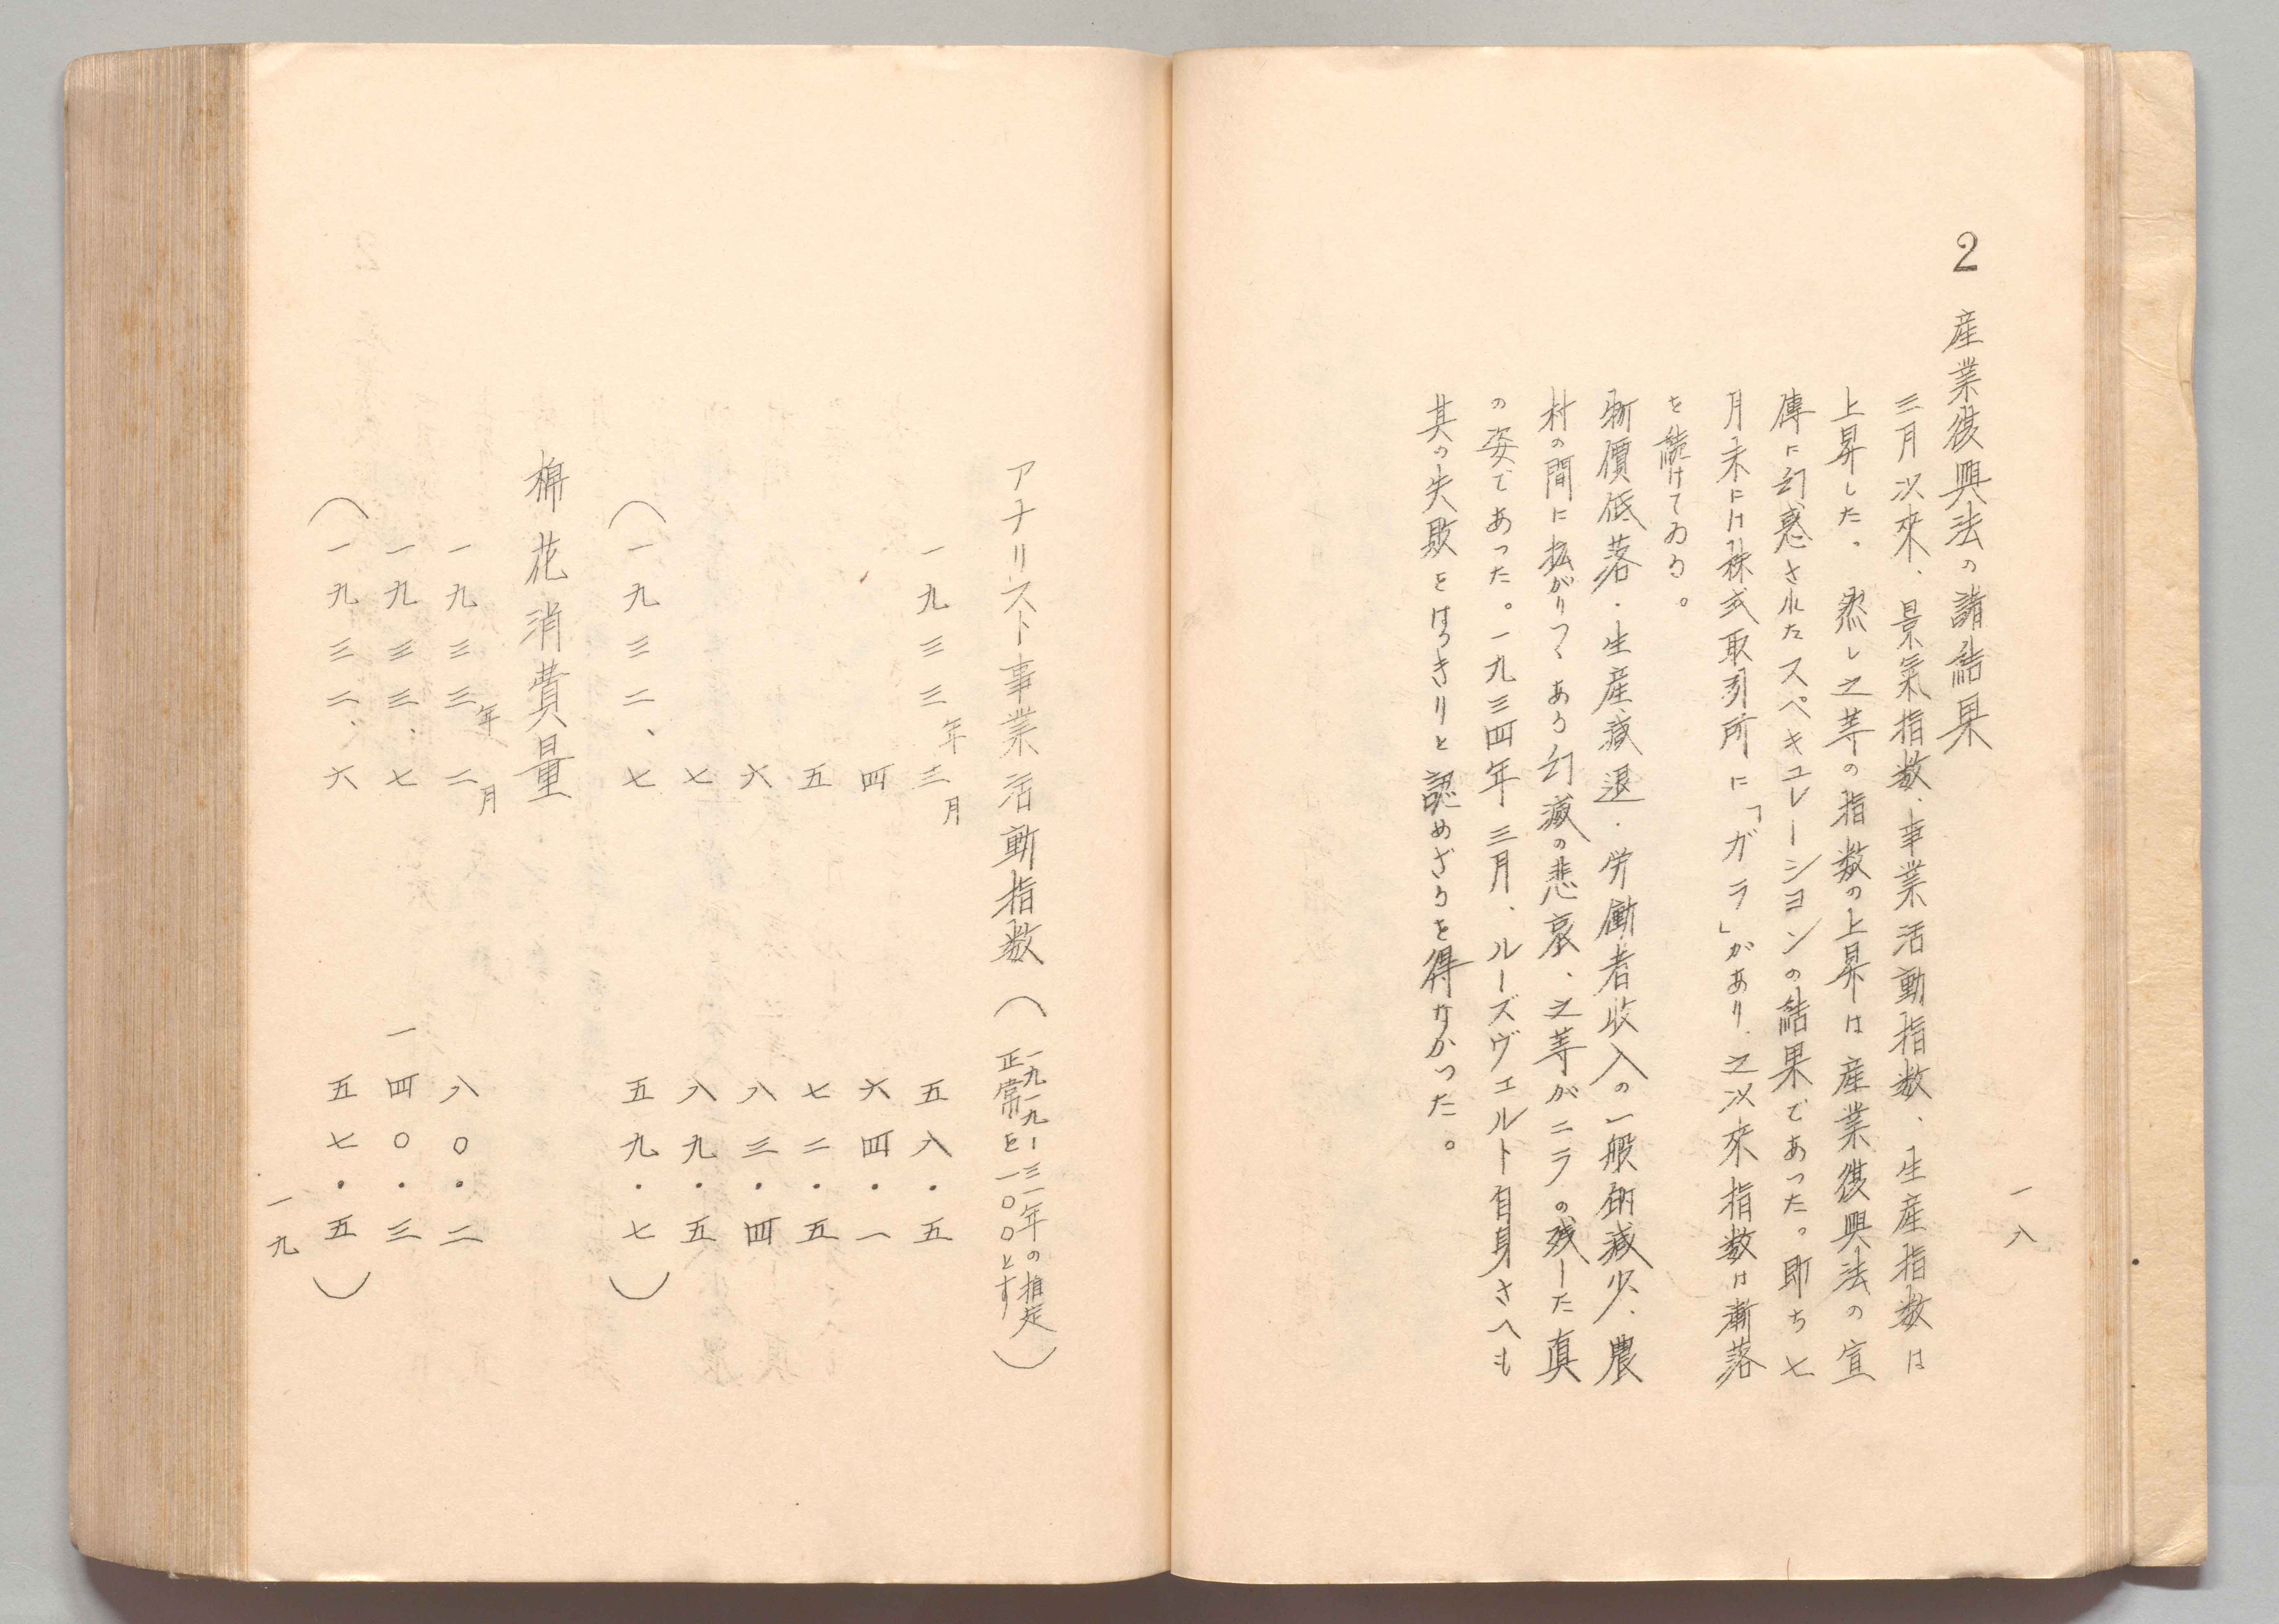 一八
2 産業復興法の諸結果
三月以來、景氣指数、事業活動指数、生産指数は
上昇した。然し之等の指数の上昇は産業復興法の宣
傳に幻惑されたスペキュレーションの結果であった。即ち七
月末には株式取引所に「ガラ」があり、之以來指数は漸落
を続けてゐる。
物價低落、生産減退、労働者收入の一般的減少、農
村の間に拡がりつゝある幻滅の悲哀、之等がニラの残した真
の姿であった。一九三四年三月、ルーズヴェルト自身さへも
其の失敗をはっきりと認めざるを得なかった。
アナリスト事業活動指数（一九一九ー三一年の推定正常を一〇〇とす）
一九三三年三月 五八・五
四 六四・一
五 七二・五
六 八三・四
七 八九・五
（一九三二、七 五九・七）
棉花消費量
一九三三年二月 八〇・二
一九三三、七 一四〇・三
（一九三二、六 五七・五）
一九